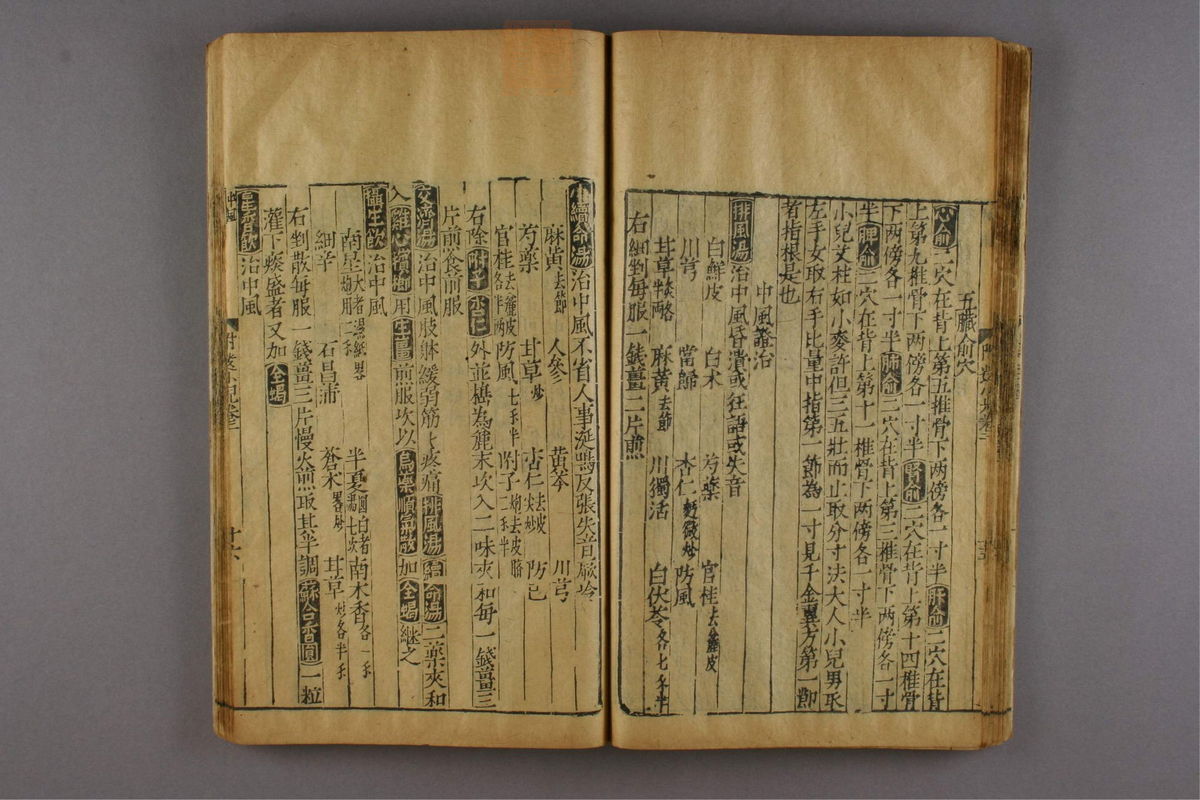 五臟俞穴
心俞二穴在背上第五椎骨下两傍各一寸半肝俞二穴在背
上第九椎骨下两傍各一寸半腎俞二穴在背上第十四椎骨
下两傍各一寸半肺俞二穴在背上第三椎骨下两傍各一寸
半脾俞二穴在背上第十一椎骨下两傍各一寸半
小兒艾炷如小麥許但三五壯而止取分寸法大人小兒男取
左手女取右手比量中指第一節為一寸見千金翼方第一節
者指根是也
中風證治
排風湯治中風昏潰或狂語或失音
白鮮皮 白术 芍藥 官桂去麤皮
川芎 當歸 杏仁麩微炒 防風
甘草半炙两 麻黄去節 川獨活 白伏苓各七錢半
右細剉每服一錢薑二片煎
小續命湯治中風不省人事涎鳴反張失音厥冷
麻黄去節 人參 黄芩 川芎
芍藥 甘草炒 杏仁去皮尖炒 防已
官桂去麤皮各半两 防風七錢半 附子炮去皮臍二錢半
右除附子杏仁外並檇為麄末次入二味夾和每一錢薑三
片煎食前服
交濟湯治中風肢躰緩弱筋〻疼痛排風湯續命湯二藥夾和
入雞心檳榔用生薑煎服次以烏藥順氣散加全蝎継之
攝生飲治中風
南星大者濕紙畧炮用二錢 半夏圓白者湯七次 南木香各一錢
細辛 石昌蒲 蒼术畧炒 甘草炒各半錢
右剉散每服一錢薑三片慢火煎取其半調蘇合香圓一粒
灌下痰盛者又加全蝎
星香飲治中風